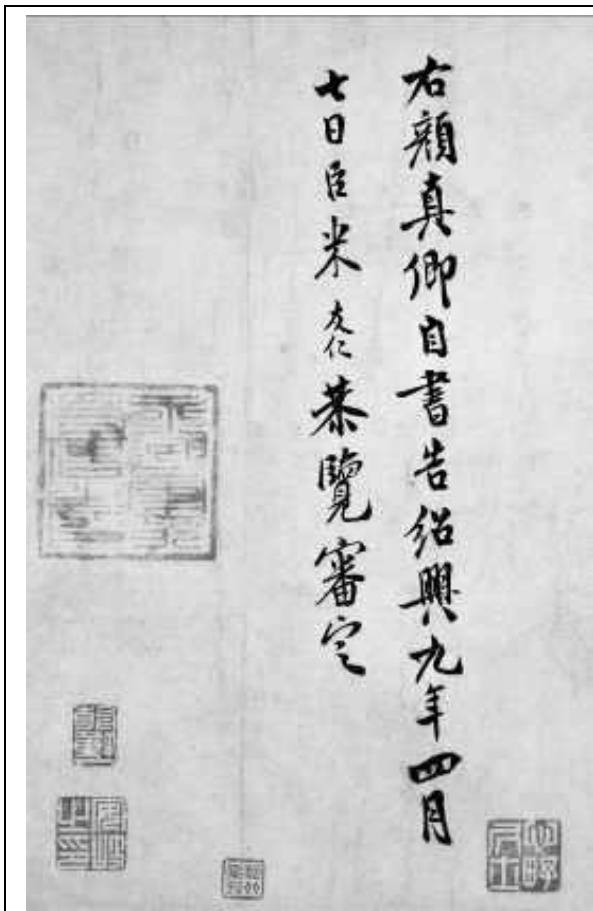 右顏真卿自書告紹興九年四月
七日臣米友仁恭覽審定